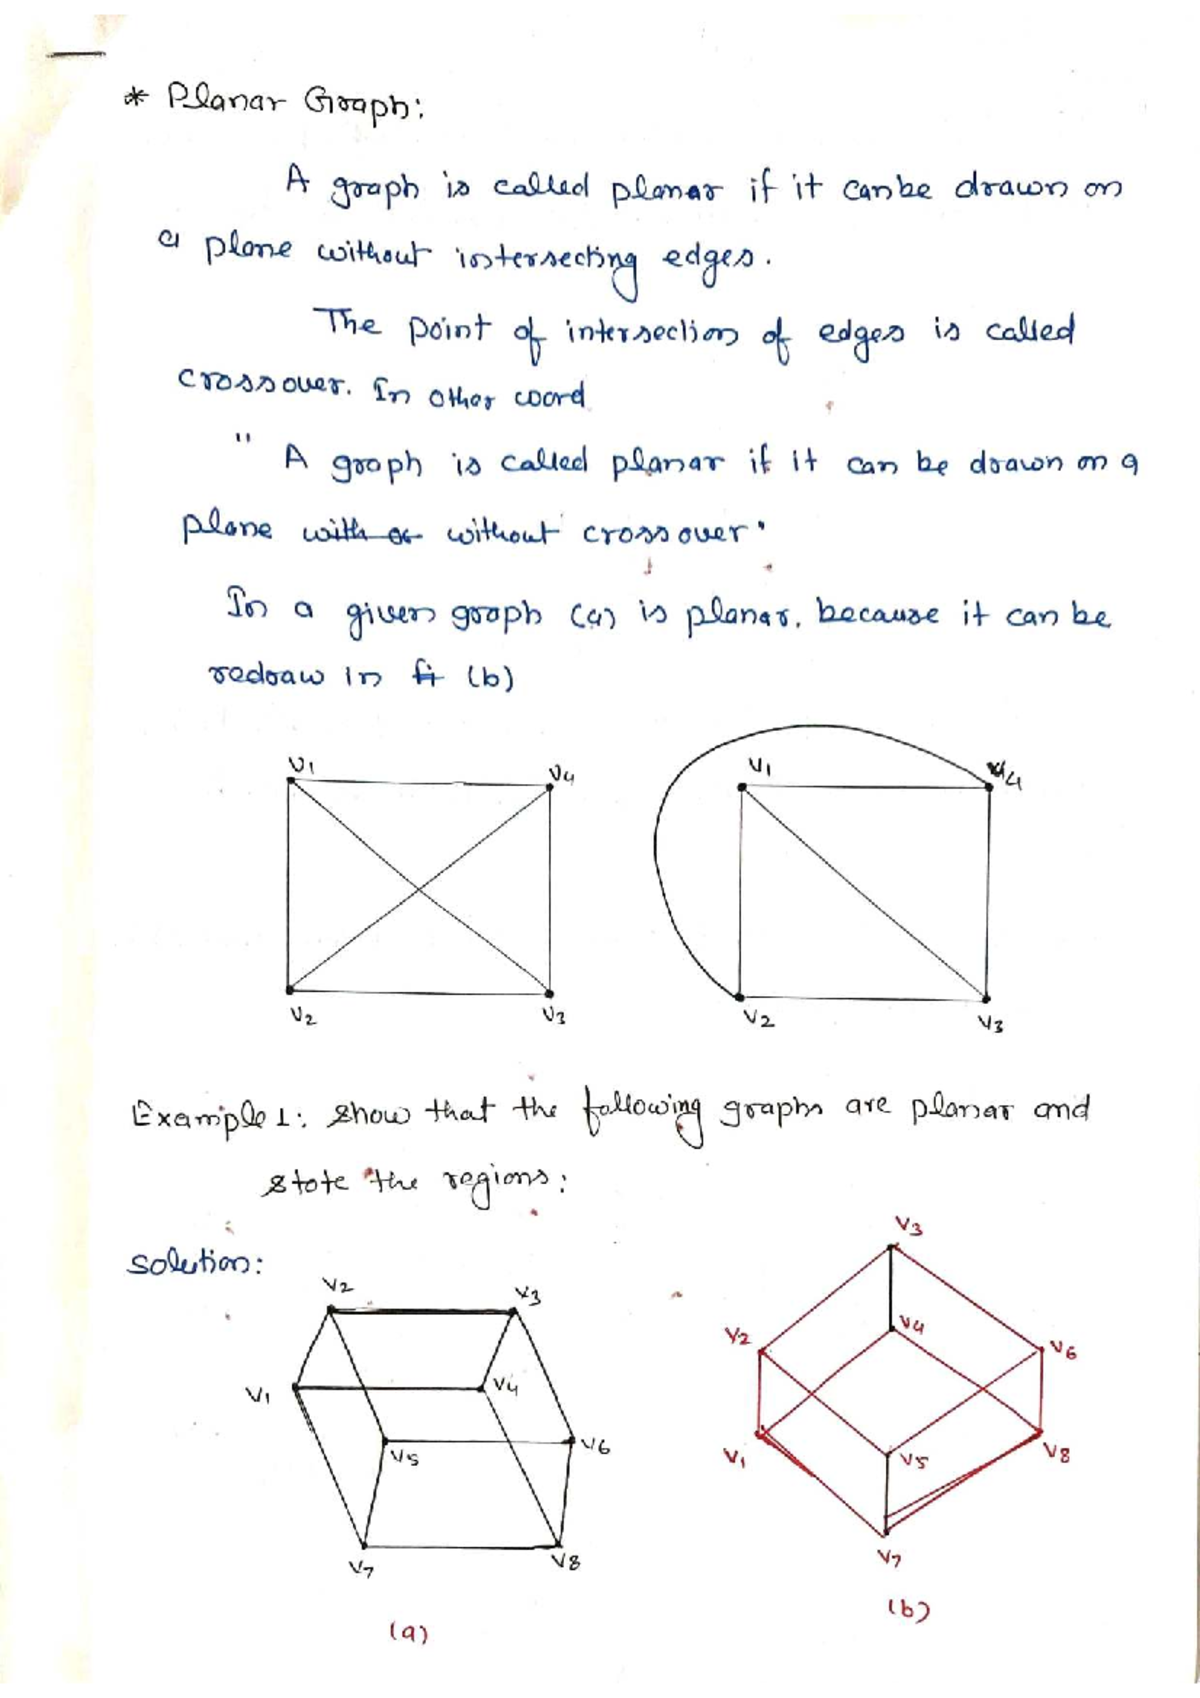 * Planar Graph:
A graph is called planar if it can be drawn on
a plane without intersecting edges.
The point of intersection of edges is called
crossover. In other word
" A graph is called planar if it can be drawn on a
plane with or without crossover"
In a given graph (a) is planar, because it can be
redraw in fi (b)
V1 V4 V1 V4
V2 V3 V2 V3
Example 1: show that the following graphs are planar and
state the regions:
Solution:
V3
V2 V3
V2 V4 V6
V1 V4
V5 V6
V1 V5 V8
V7 V8
V7
(a) (b)